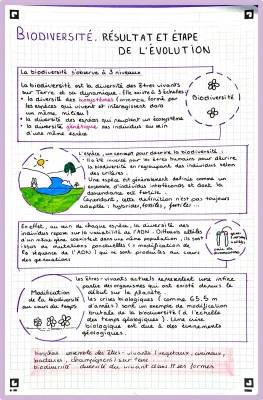 BIODIVERSITÉ. RÉSULTAT ET ÉTAPE
DE L'ÉVOLUTION
La biodiversité s'observe à 3 niveaux
La biodiversité est la diversité des êtres vivants
sur Terre et sa dynamique. Elle existe à 3 échelles :
• la diversité des écosystèmes (
les espèces qui vivent et interagissent dans
un même milieu)
• la diversité des espèces qui peuplent un écosystème
• la diversité génétique des individus au sein
d'une même espèce
Biodiversité
Espèce, un concept pour décrire la biodiversité
Il a été inventé par les êtres humains pour décrire
la biodiversité en regroupant des individus selon
des critères.
Une espèce est généralement définie comme un
ensemble d'individus interféconds et dont la
descendance est fertile.
Cependant, cette définition n'est pas toujours
adaptée : hybrides fertiles, fossiles...
En effet, au sein de chaque espèce, la diversité des
individus repose sur la variabilité de l'ADN. Différents allèles
d'un même gène coexistent dans une même population, ils sont
issus de mutations ponctuelles (modification de
la séquence de l'ADN) qui se sont produites au cours
des générations
Modification
de la biodiversité
au cours du temps
Les êtres-vivants actuels représentent une infime
partie des organismes qui ont existé depuis le
début sur la planète.
Les crises biologiques (comme 65.5 m
d'années) sont un exemple de modification
brutale de la biodiversité (à l'échelle
des temps géologiques). Une crise
biologique est due à des événements
géologiques.
ensemble des êtres-vivants (végétaux, animaux,
bactéries, champignons) sur Terre
biodiversité diversité du vivant dans ttes ses formes